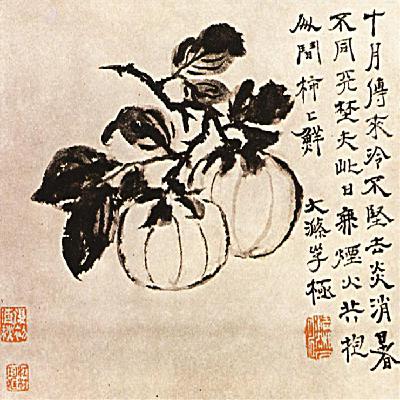 十月傳來冷不堅去炎消暑
不同夫此日煙火共抱
間柿鮮
大滌子極